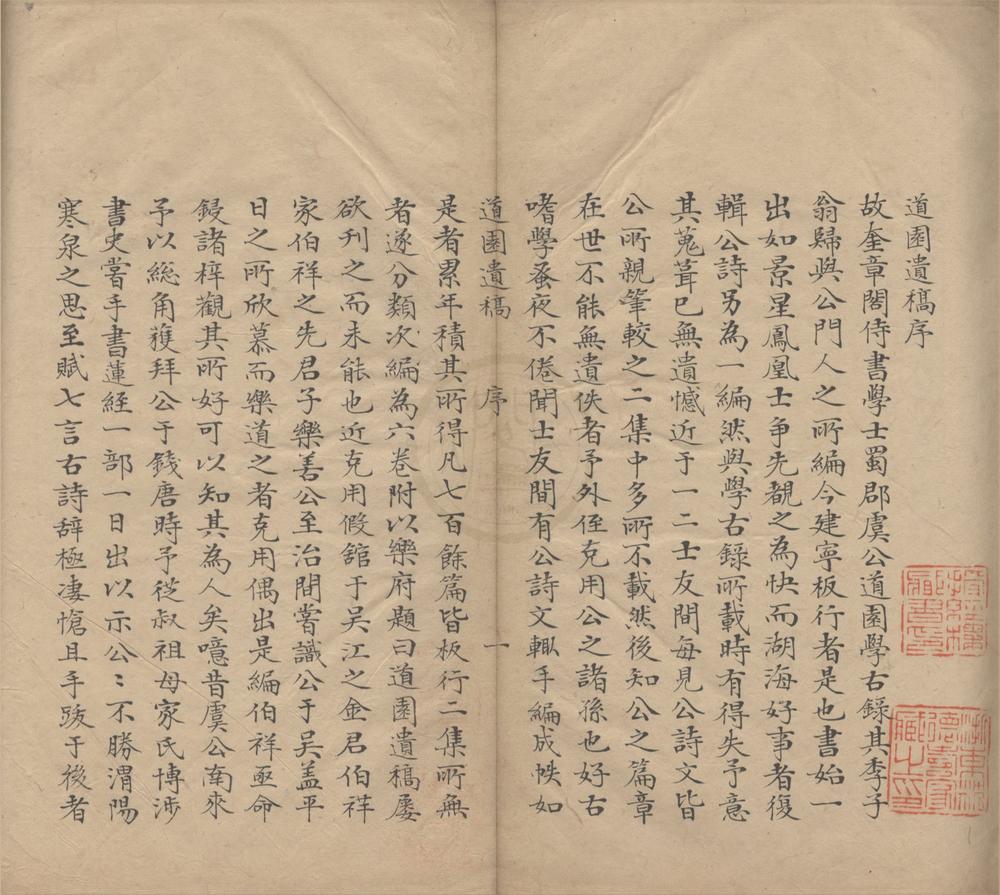 道園遺稿序
故奎章閣侍書學士蜀郡虞公道園學古錄其季子
翁歸與公門人之所編今建寧板行者是也書始一
出如景星鳳凰士争先覩之為快而湖海好事者復
輯公詩另為一編然與學古錄所載時有得失予意
其蒐葺已無遺憾近于一二士友間每見公詩文皆
公所親筆較之二集中多所不載然後知公之篇章
在世不能無遺佚者予外侄克用公之諸孫也好古
嗜學蚤夜不倦聞士友間有公詩文輙手編成帙如
道園遺稿 序 一
是者累年積其所得凡七百餘篇皆板行二集所無
者遂分類次編為六卷附以樂府題曰道園遺稿屢
欲刋之而未能也近克用假舘于吴江之金君伯祥
家伯祥之先君子樂善公至治間嘗識公于吴盖平
日之所欣慕而樂道之者克用偶出是編伯祥亟命
鋟諸梓觀其所好可以知其為人矣噫昔虞公南來
予以總角獲拜公于錢唐時予從叔祖母家氏博涉
書史嘗手書蓮經一部一日出以示公〻不勝渭陽
寒泉之思至賦七言古詩辭極凄愴且手跋于後者